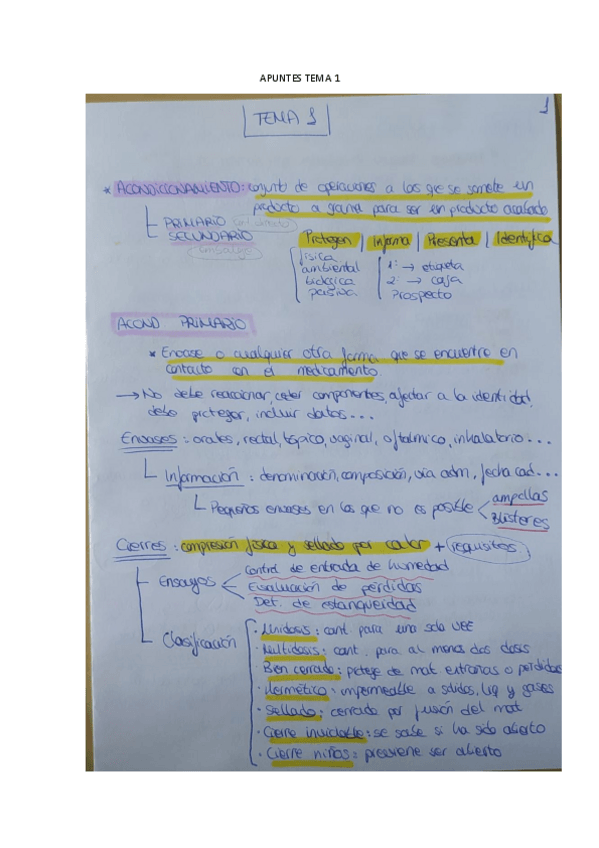 APUNTES TEMA 1
1
TEMA 1
* ACONDICIONAMIENTO: conjunto de operaciones a las que se somete un
producto a granel para ser un producto acabado
PRIMARIO
SECUNDARIO
embalaje
Protegen | Informa | Presenta | Identifica
física
ambiental
biológica
pasiva
1: → etiqueta
2: → caja
Prospecto
ACOND PRIMARIO
* Envase o cualquier otra forma que se encuentre en
contacto con el medicamento.
→ No debe reaccionar, ceder componentes, afectar a la identidad,
debe proteger, incluir datos...
Envases: orales, rectal, tópico, vaginal, oftálmico, inhalatorio...
Información: denominación, composición, vía adm, fecha cad...
Pequeños envases en los que no es posible < ampollas
Blísteres
Cierres: compresión física y sellado por calor + requisitos
Ensayos < Control de entrada de humedad
Evaluación de pérdidas
Det. de estanqueidad
Clasificación
· Unidosis: cant. para una sola vez
· Multidosis: cant. para al menos dos dosis
· Bien cerrado: protege de mat extrañas o pérdidas
· Hermético: impermeable a sólidos, líq y gases
· Sellado: cerrado por fusión del mat
· Cierre inviolable: se sabe si ha sido abierto
· Cierre niños: previene ser abierto